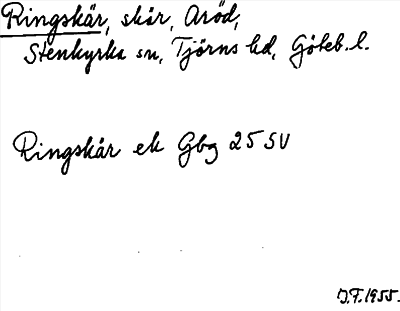 Ringskär, skär, Aröd,
Stenkyrka sn, Tjörns hd, Göteb. l.
Ringskär ek Gbg 25 SV
J.F. 1955.